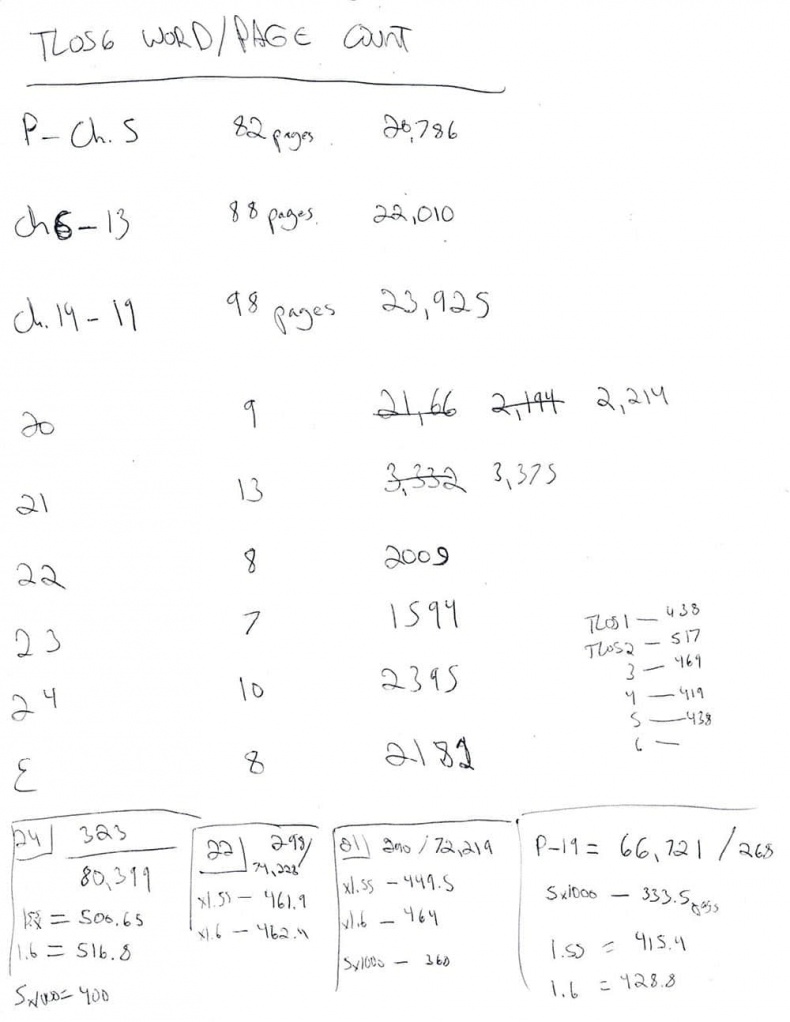 TLOS6 WORD/PAGE COUNT
P-Ch.5 82 pages 20,786
ch6-13 88 pages. 22,010
ch.14-19 98 pages 23,925
20 9 21,66 2,194 2,214
21 13 3,332 3,375
22 8 2009
23 7 1594
24 10 2395
E 8 2182
TLOS1 - 438
TLOS2 - 517
3 - 469
4 - 419
5 - 438
6 -
24 323
80,399
= 500.65
1.6 = 516.8
5x1000 = 400
22 298/
74,228
x1.55 - 461.9
x1.6 - 462.4
21 290/72,219
x1.55 - 449.5
x1.6 - 464
5x1000 - 360
P-19 = 66,721/268
5x1000 - 333.5 pages
1.55 = 415.4
1.6 = 428.8